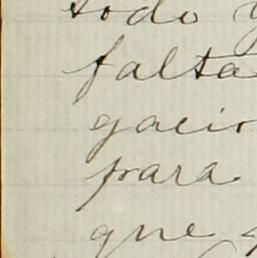 todo y
falta
gacio
para
que